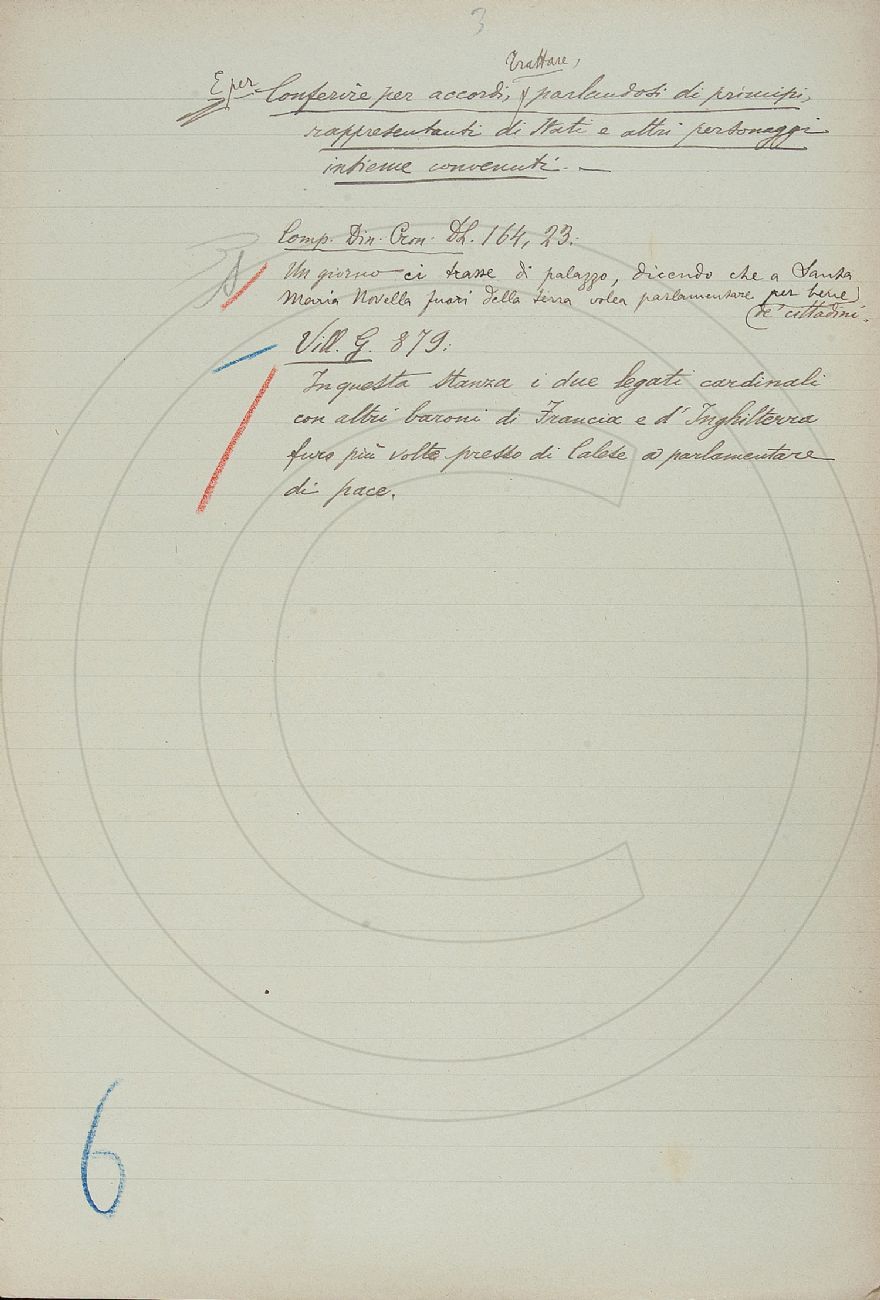 3
Trattare,
E per Conferire per accordi, parlandosi di principi,
rappresentanti di Stati e altri personaggi
insieme convenuti. —
Comp. Din. Cron. DL. 164, 23:
Un giorno ci trasse di palazzo, dicendo che a Santa
Maria Novella fuori della terra volea parlamentare per bene
de' cittadini.
Vill. G. 879:
In questa stanza i due legati cardinali
con altri baroni di Francia e d'Inghilterra
furo più volte presso di Calese a parlamentare
di pace.
6